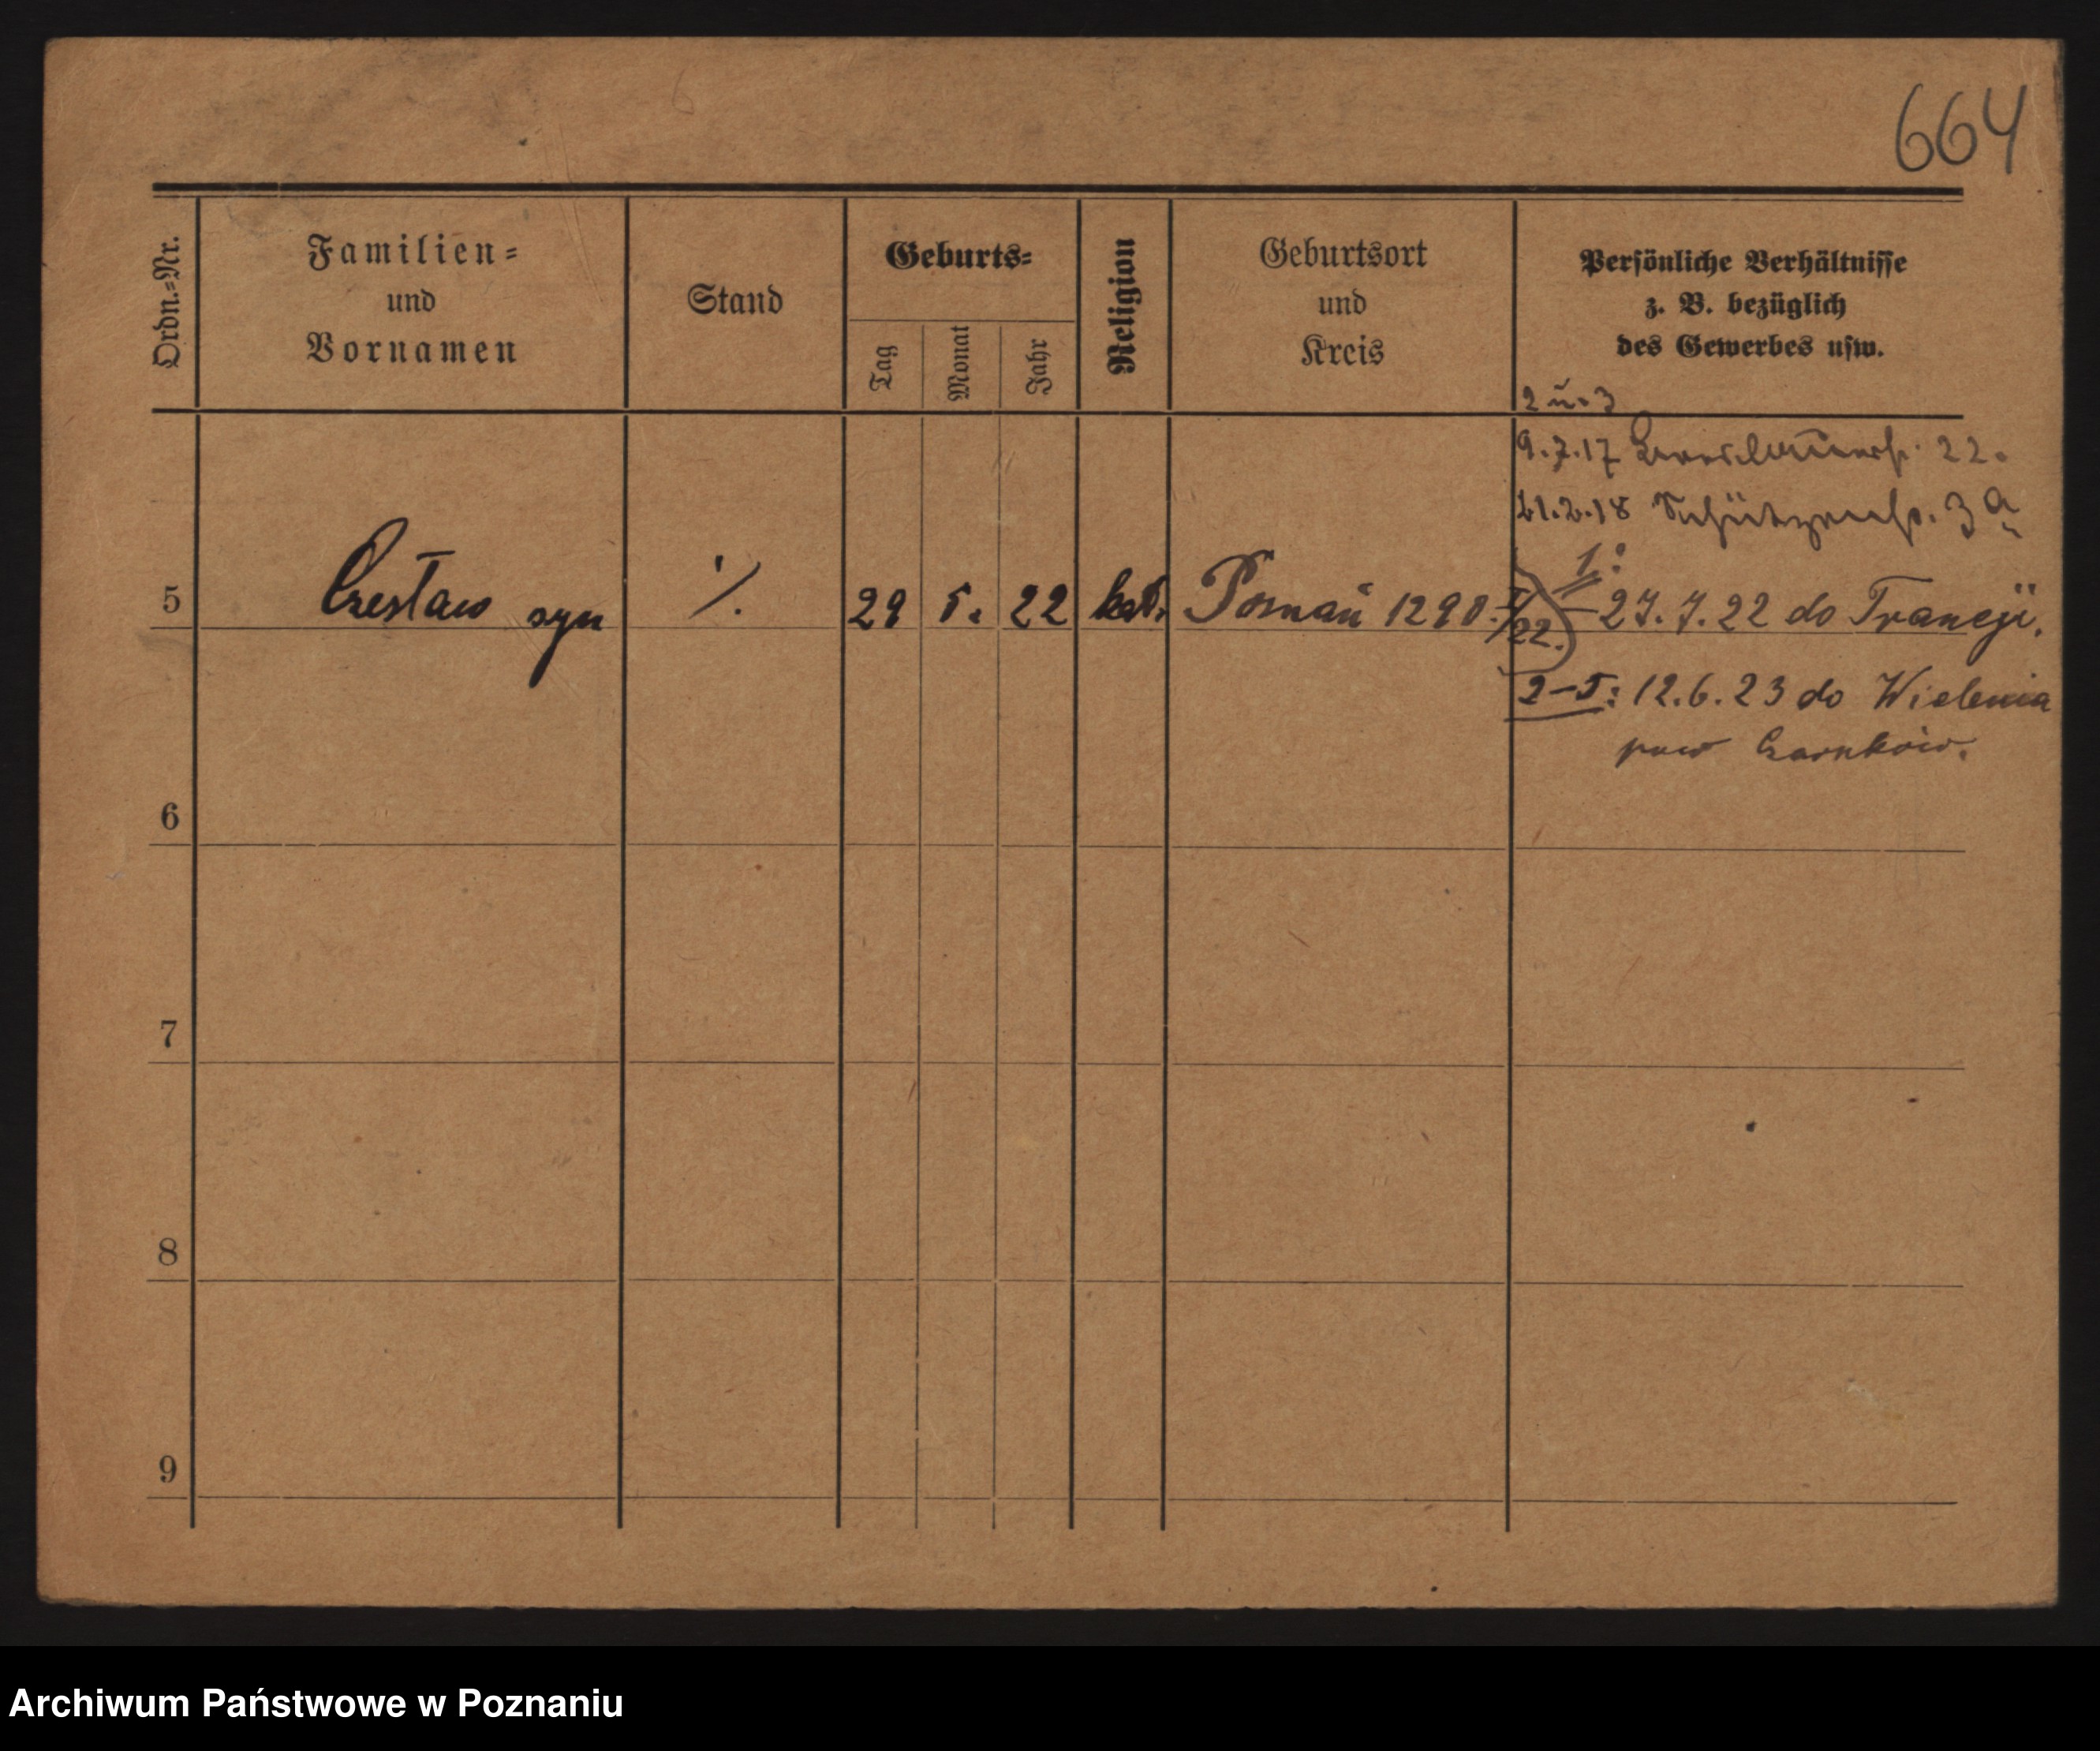 664
Ordn.-Nr.
Familien-
und
Vornamen
Stand
Geburts-
Tag
Monat
Jahr
Religion
Geburtsort
und
Kreis
Persönliche Verhältnisse
z. B. bezüglich
des Gewerbes usw.
2 u. 3
9.7.17 22.
21.2.18 Schützenstr. 3a
1:
5 Czesław syn ·/. 29 5. 22 kat. Poznań 1290. I/22. – 27.7.22 do Francji.
2–5: 12.6.23 do Wielenia
pow Czarnków.
6
7
8
9
Archiwum Państwowe w Poznaniu